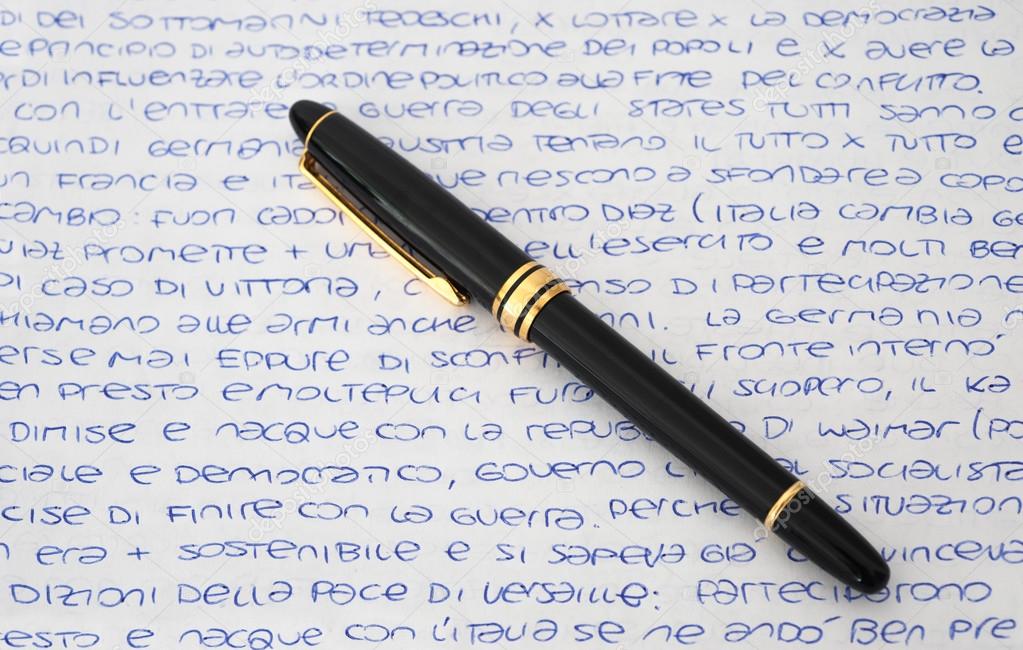 DI DEI SOTTOMARINI TEDESCHI, X LOTTARE X LA DEMOCRAZIA
E PRINCIPIO DI AUTODETERMINAZIONE DEI POPOLI E X AVERE LA
DI INFLUENZARE L'ORDINE POLITICO ALLA FINE DEL CONFLITTO.
CON L'ENTRATA GUERRA DEGLI STATES TUTTI SANNO C
QUINDI GERMANIA AUSTRIA TENTANO IL TUTTO X TUTTO E
FRANCIA E ITA UE RIESCONO A SFONDARE A CAPO
CAMBIO: FUORI CADOR DENTRO DIAZ (ITALIA CAMBIA GE
DIAZ PROMETTE + ELL'ESERCITO E MOLTI BEN
DI CASO DI VITTORIA, C ENSO DI PARTECIPAZIONE
HIAMANO ALLE ARMI ANCHE NNI. LA GERMANIA N
ERSE MAI EPPURE DI SCONFI IL FRONTE INTERNO
EN PRESTO E MOLTEPLICI FURO GLI SCIOPERO, IL KA
DIMISE E NACQUE CON LA REPUBB DI WAIMAR (PO
CIALE E DEMOCRATICO, GOVERNO L AL SOCIALISTA
CISE DI FINIRE CON LA GUERRA. PERCHE SITUAZION
N ERA + SOSTENIBILE E SI SAPEVA GIA C VINCEVA
DIZIONI DELLA PACE DI VERSAILLE: PARTECIPARONO
ESTO E NACQUE CON L'ITALIA SE NE ANDÒ BEN PRE